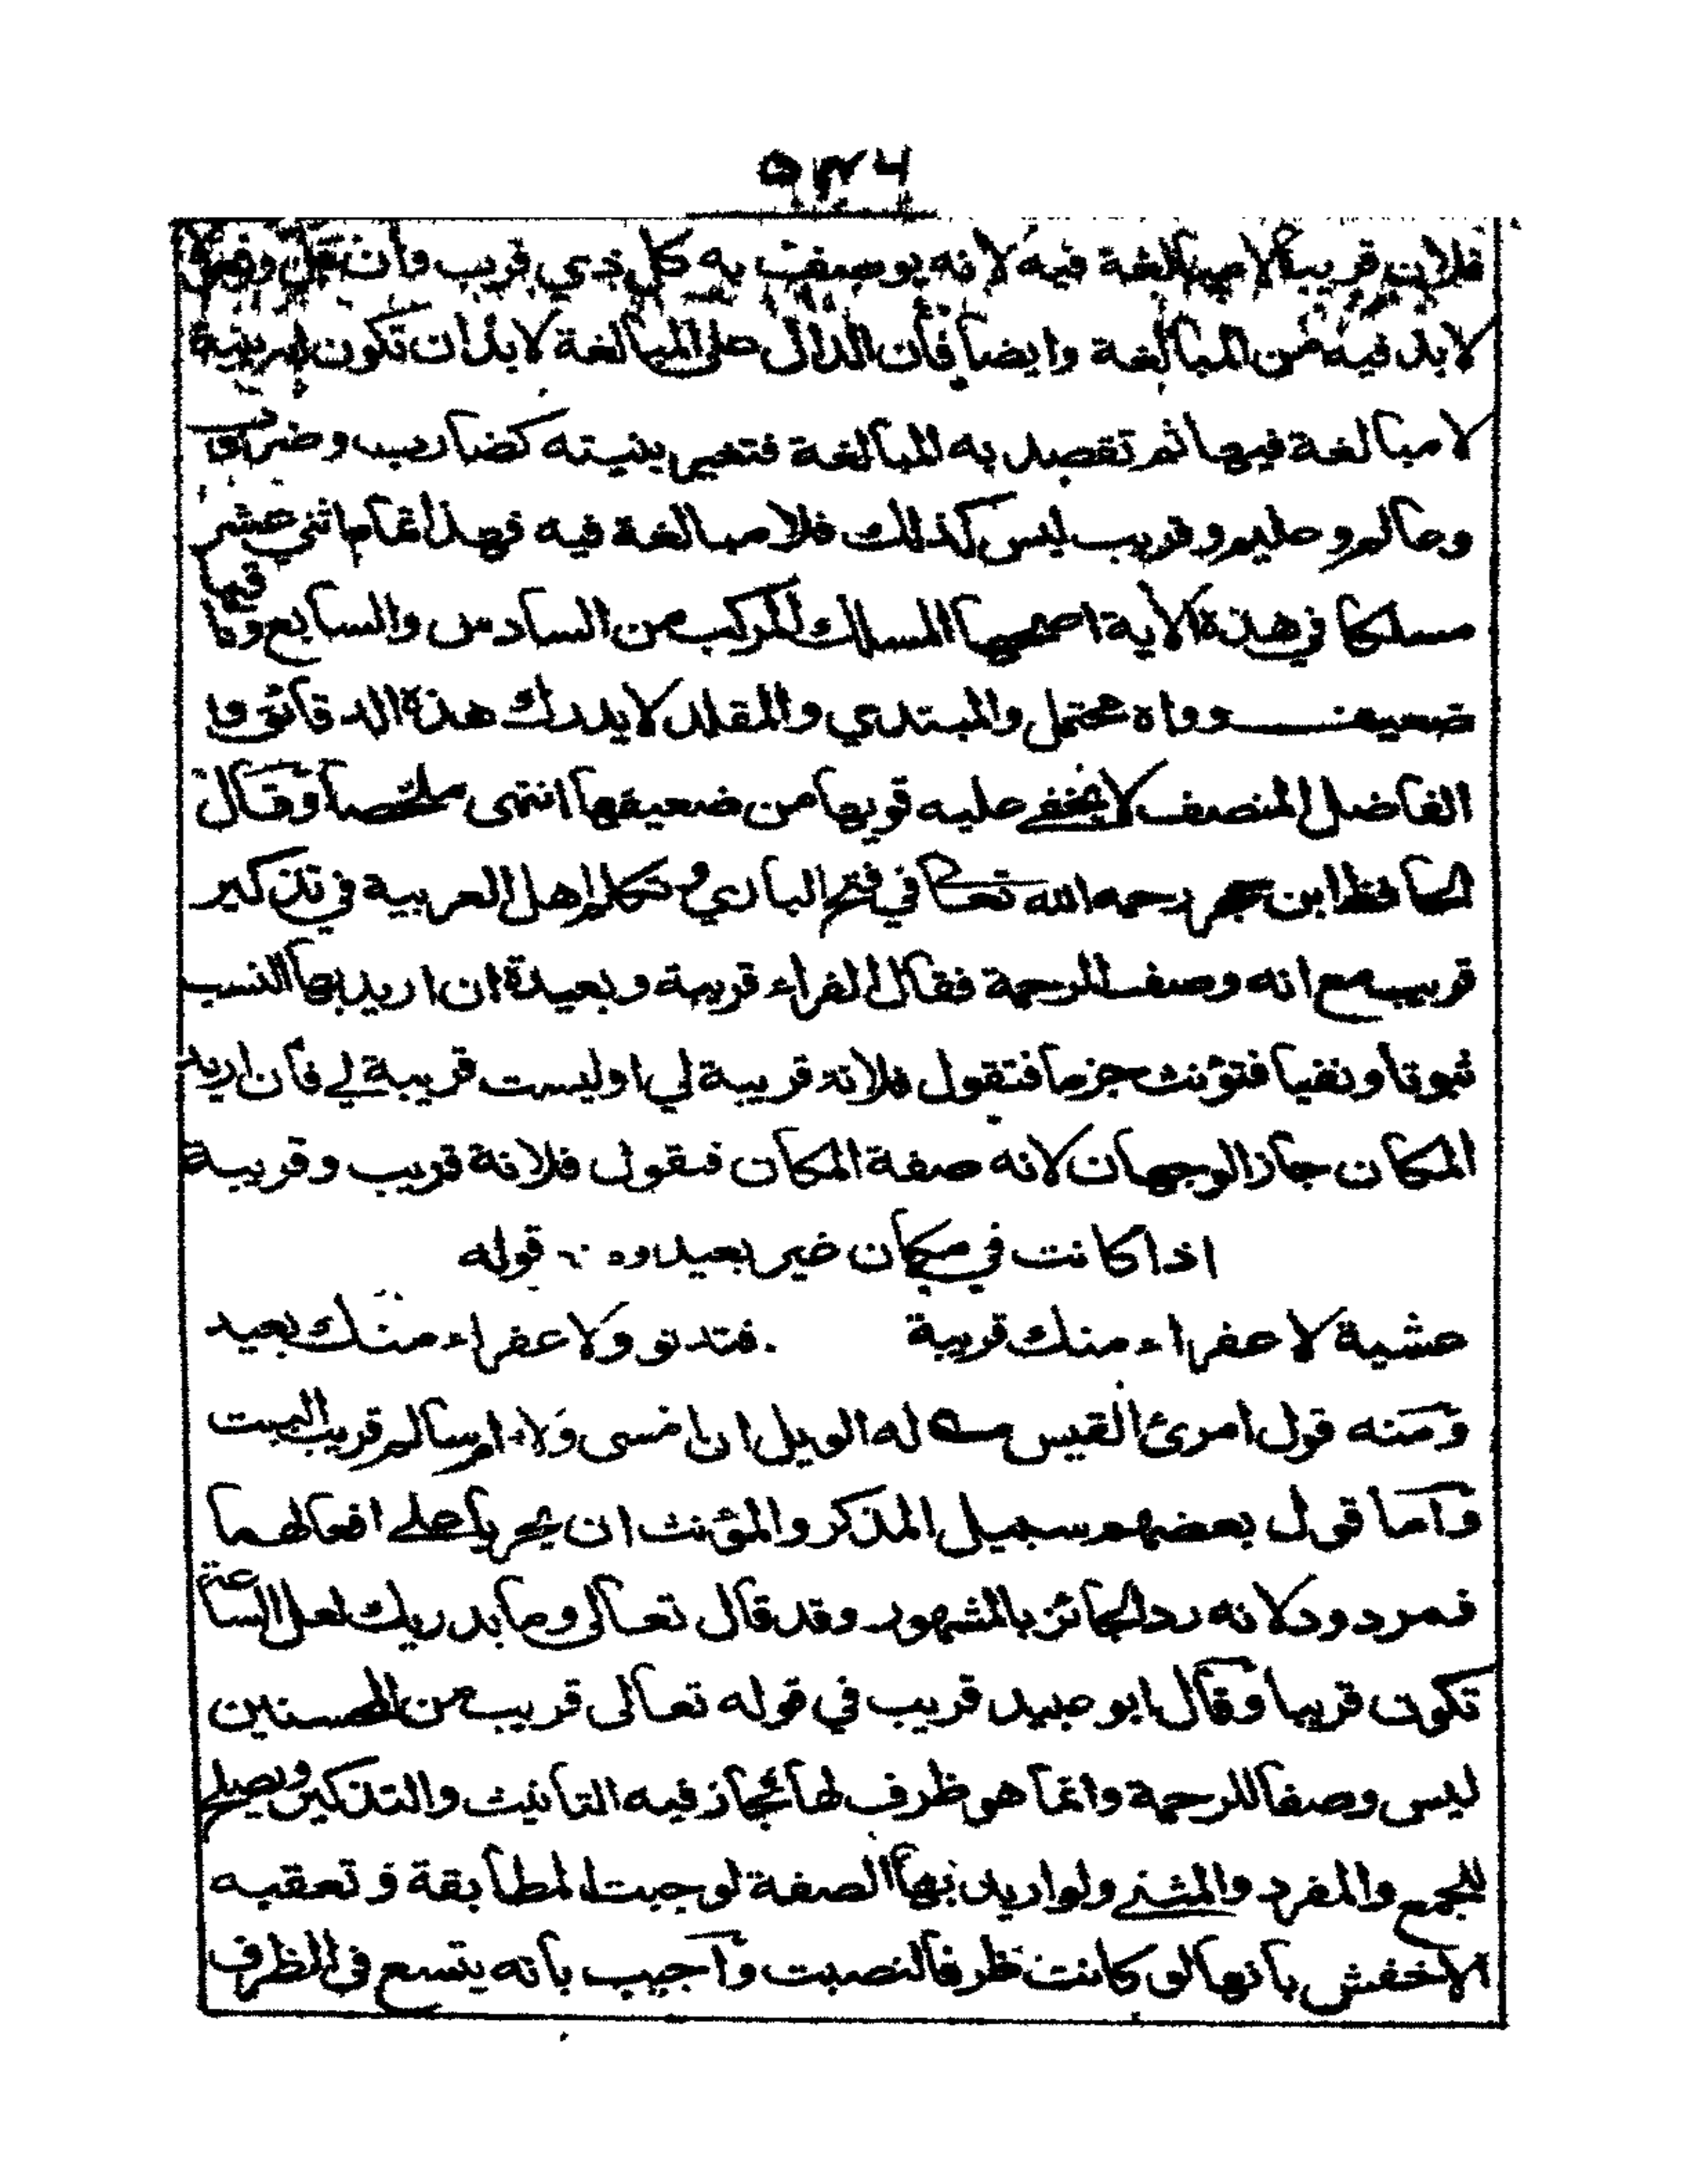 ٥٣٤
فلان قريبا لا مبالغة فيه لانه يوصف به كل ذي قرب وان قل وفعيل
لابد فيه من المبالغة وايضا فأن الدال على المبالغة لابد ان تكون له بنية
لا مبالغة فيها ثم تقصد به المبالغة فتغير بنيته كضارب وضراب
وعالم وعليم وقريب ليس كذلك فلا مبالغة فيه فهذا تمام اثني عشر
مسلكا في هذة الاية اصحها المسلك المركب من السادس والسابع وباقيها
ضعيف وواه ومحتمل والمبتدي والمقلد لا يدرك هذة الدقائق و
الفاضل المنصف لا يخفى عليه قويها من ضعيفها انتهى ملخصا وقال
الحافظ ابن حجر رحمه الله تعالى في فتح الباري وتكلم اهل العربية في تذكير
قريب مع انه وصف للرحمة فقال الفراء قريبة وبعيدة ان اريد بها النسب
ثبوتا ونفيا فتؤنث جزما فتقول فلانة قريبة لي او ليست قريبة لي فأن اريد
المكان جاز الوجهان لانه صفة المكان فتقول فلانة قريب وقريبة
اذا كانت في مكان غير بعيد وه قوله
عشية لا عفراء منك قريبة . فتدنو ولا عفراء منك بعيد
ومنه قول امرئ القيس له الويل ان امسى ولا ام سالم قريب البيت
واما قول بعضهم سبيل المذكر والمؤنث ان يجريا على افعالهما
فمردود لانه رد الجائز بالمشهور وقد قال تعالى وما يدريك لعل الساعة
تكون قريبا وقال ابو عبيد قريب في قوله تعالى قريب من المحسنين
ليس وصفا للرحمة وانما هو ظرف لها فجاز فيه التأنيث والتذكير ويصلح
للجمع والمفرد والمثنى ولو اريد بها الصفة لوجبت المطابقة وتعقبه
الاخفش بأنها لو كانت ظرفا لنصبت وأجيب بأنه يتسع في الظرف